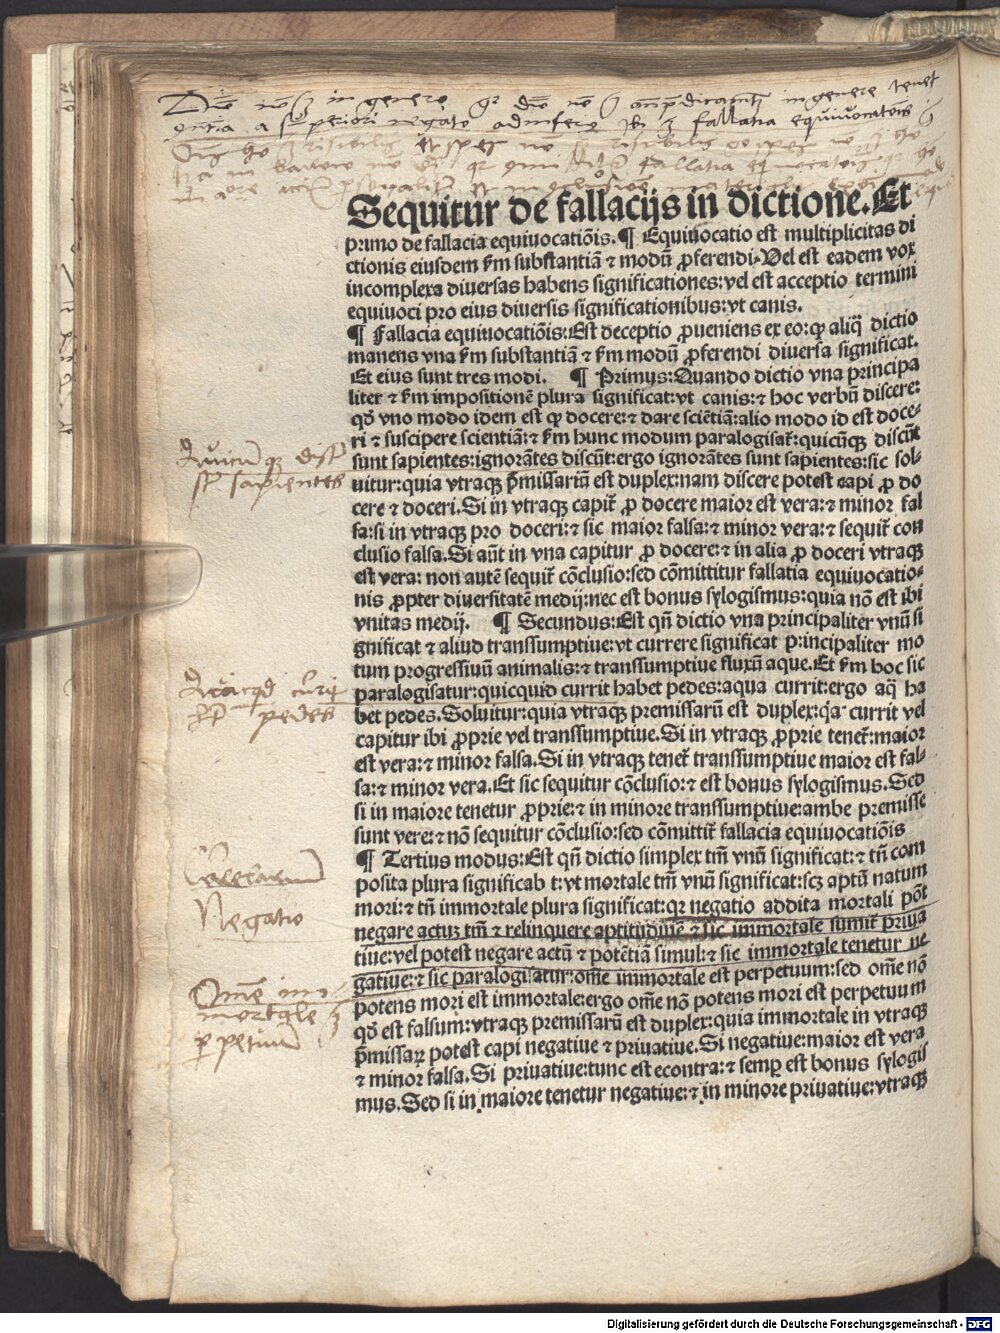 Sequitur de fallacijs in dictione. Et
primo de fallacia equiuocatiōis. ¶ Equiuocatio est multiplicitas di
ctionis eiusdem ẜm substantiā ⁊ modū ꝓferendi. Vel est eadem vox
incomplexa diuersas habens significationes: vel est acceptio termini
equiuoci pro eius diuersis significationibus: vt canis.
¶ Fallacia equiuocatiōis: Est deceptio ꝓueniens ex eo: ꝙ aliq̄ dictio
manens vna ẜm substantiā ⁊ ẜm modū ꝓferendi diuersa significat.
Et eius sunt tres modi. ¶ Primus: Quando dictio vna principa
liter ⁊ ẜm impositionē plura significat: vt canis: ⁊ hoc verbū discere:
qđ vno modo idem est ꝙ docere: ⁊ dare sciētiā: alio modo id est doce⸗
ri ⁊ suscipere scientiā: ⁊ ẜm hunc modum paralogisat̄: quicūqꝫ discūt
sunt sapientes: ignorātes discūt: ergo ignorātes sunt sapientes: sic sol⸗
uitur: quia vtraqꝫ p̄missariū est duplex: nam discere potest capi ꝓ do
cere ⁊ doceri. Si in vtraqꝫ capit̄ ꝓ docere maior est vera: ⁊ minor fal
sa: si in vtraqꝫ pro doceri: ⁊ sic maior falsa: ⁊ minor vera: ⁊ sequit̄ con
clusio falsa. Si aūt in vna capitur ꝓ docere: ⁊ in alia ꝓ doceri vtraqꝫ
est vera: non autē sequit̄ cōclusio: sed cōmittitur fallatia equiuocatio⸗
nis ꝓpter diuersitatē medij: nec est bonus sylogismus: quia nō est ibi
vnitas medij. ¶ Secundus: Est qn̄ dictio vna principaliter vnū si
gnificat ⁊ aliud transsumptiue: vt currere significat principaliter mo
tum progressiuū animalis: ⁊ transsumptiue fluxū aque. Et ẜm hoc sic
paralogisatur: quicquid currit habet pedes: aqua currit: ergo aq̄ ha
bet pedes. Soluitur: quia vtraqꝫ premissarū est duplex: q̄a currit vel
capitur ibi ꝓprie vel transsumptiue. Si in vtraqꝫ ꝓprie tenet̄: maior
est vera: ⁊ minor falsa. Si in vtraqꝫ tenet̄ transsumptiue maior est fal⸗
sa: ⁊ minor vera. Et sic sequitur cōclusio: ⁊ est bonus sylogismus. Sed
si in maiore tenetur ꝓprie: ⁊ in minore transsumptiue: ambe premisse
sunt vere: ⁊ nō sequitur cōclusio: sed cōmittit̄ fallacia equiuocatiōis
¶ Tertius modus: Est qn̄ dictio simplex tm̄ vnū significat: ⁊ tn̄ com
posita plura significab t: vt mortale tm̄ vnū significat: scꝫ aptū natum
mori: ⁊ tn̄ immortale plura significat: qr negatio addita mortali pōt
negare actuꝫ tm̄ ⁊ relinquere aptitudinē ⁊ sic immortale sumit̄ priua
tiue: vel potest negare actū ⁊ potētiā simul: ⁊ sic immortale tenetur ne
gatiue: ⁊ sic paralogisatur: om̄e immortale est perpetuum: sed om̄e nō
potens mori est immortale: ergo om̄e nō potens mori est perpetuum
qđ est falsum: vtraqꝫ premissarū est duplex: quia immortale in vtraqꝫ
p̄missaꝝ potest capi negatiue ⁊ priuatiue. Si negatiue: maior est vera
⁊ minor falsa. Si priuatiue: tunc est econtra: ⁊ semꝑ est bonus sylogis
mus. Sed si in maiore tenetur negatiue: ⁊ in minore priuatiue: vtraqꝫ
sapientes
pedes
Negatio
Digitalisierung gefördert durch die Deutsche Forschungsgemeinschaft - DFG